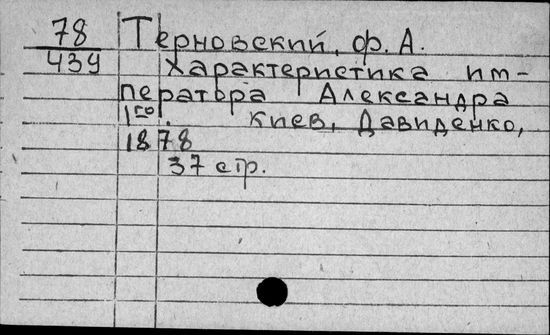 78 Терновский, Ф. А.
439 Характеристика им-
ператора Александра
1го. Киев, Давиденко,
1878
37 стр.